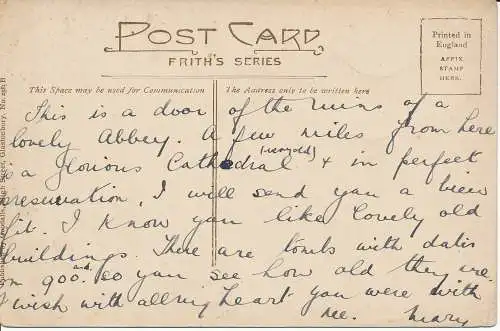 POST CARD
FRITH'S SERIES
Printed in
England
AFFIX
STAMP
HERE.
This Space may be used for Communication
The Address only to be written here
This is a door of the ruins of a
lovely Abbey. A few miles from here
is a glorious Cathedral (very old) & in perfect
preservation, I will send you a view
of it. I know you like lovely old
buildings. There are tombs with dates
in 900 and so you see how old they are.
I wish with all my heart you were with
me. Mary
High Street, Glastonbury, No. 256 B